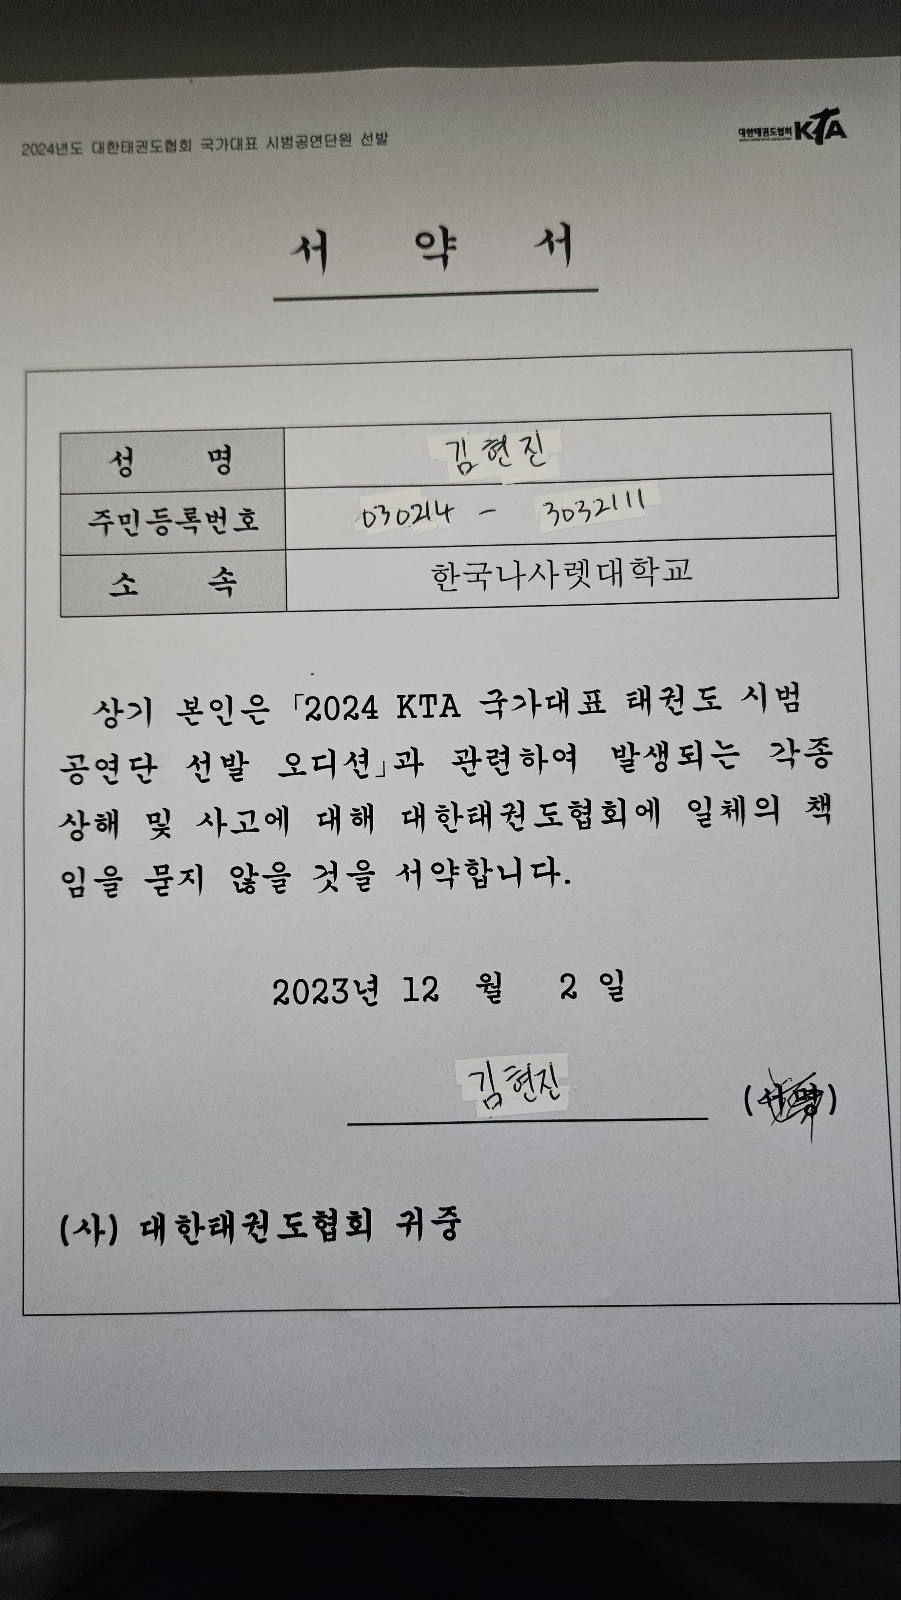 2024년도 대한태권도협회 국가대표 시범공연단원 선발
대한태권도협회 KTA
서 약 서
성 명 김현진
주민등록번호 030214 - 3032111
소 속 한국나사렛대학교
상기 본인은 「2024 KTA 국가대표 태권도 시범
공연단 선발 오디션」과 관련하여 발생되는 각종
상해 및 사고에 대해 대한태권도협회에 일체의 책
임을 묻지 않을 것을 서약합니다.
2023년 12 월 2 일
김현진 (서명)
(사) 대한태권도협회 귀중